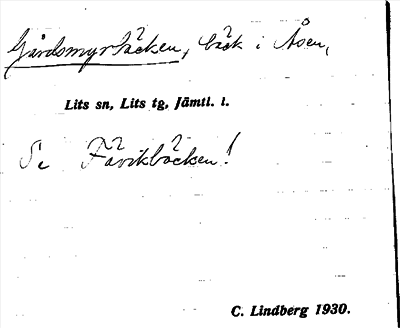 Gårdsmyrbäcken, bäck i Åsen,
Lits sn, Lits tg, Jämtl. l.
Se Fävikbäcken!
C. Lindberg 1930.